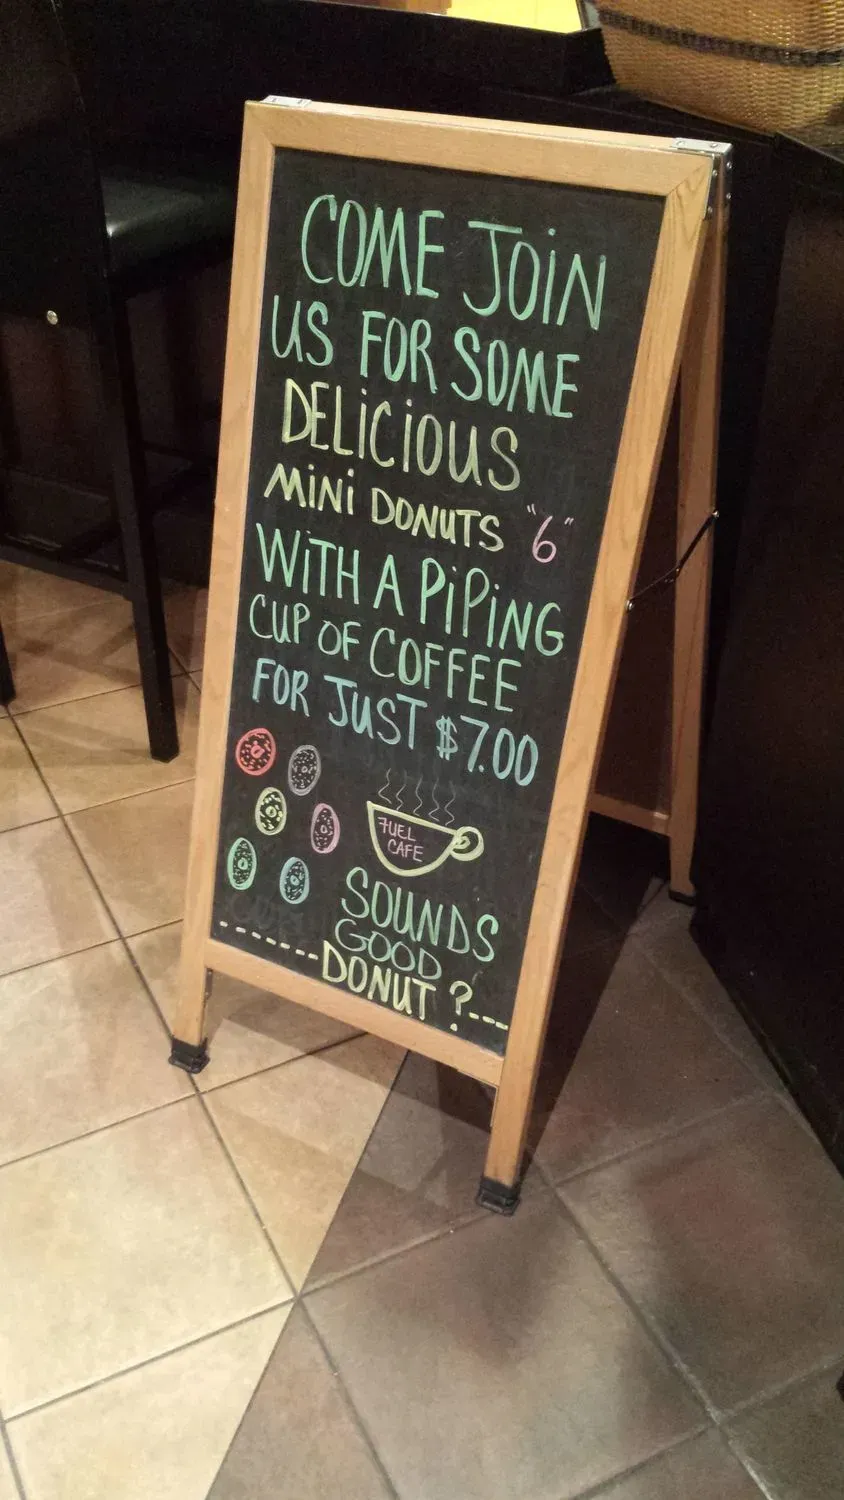 COME JOIN
US FOR SOME
DELICIOUS
MINI DONUTS "6"
WITH A PIPING
CUP OF COFFEE
FOR JUST $7.00
FUEL
CAFE
SOUNDS
GOOD
-------DONUT ?---